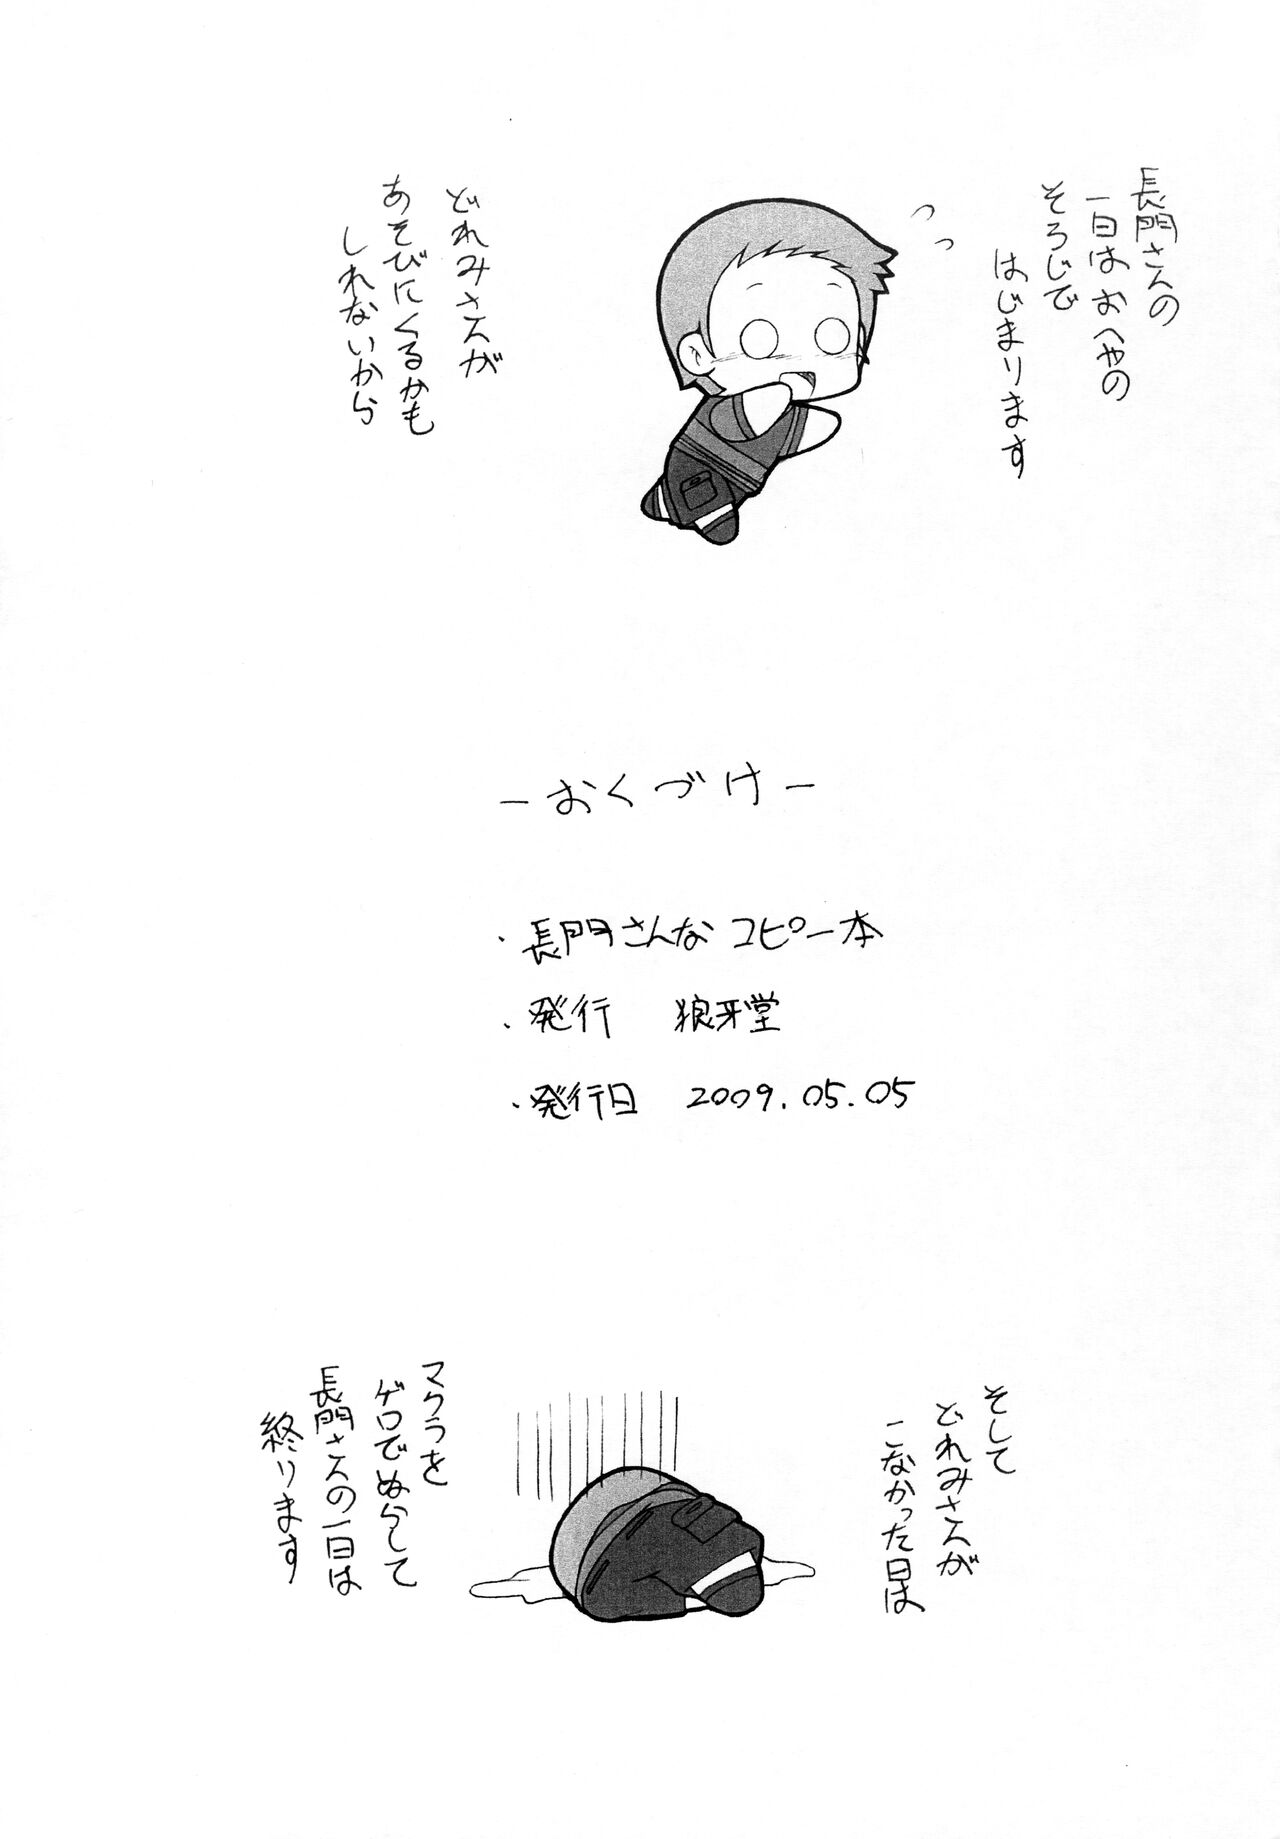 長門さんの
一日はおへやの
そろじで
はじまります
どれみさんが
あそびにくるかも
しれないから
っ
っ
－おくづけ－
・長門さんな コピー本
・発行 狼牙堂
・発行日 2009.05.05
そして
どれみさんが
こなかった日は
マクラを
ゲロでぬらして
長門さんの一日は
終ります